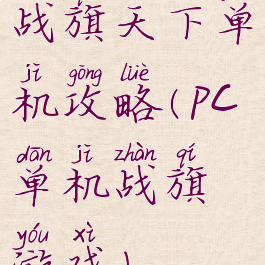 战旗天下单
jī gōng lüè
机攻略(PC
dān jī zhàn qí
单机战旗
yóu xì
游戏)